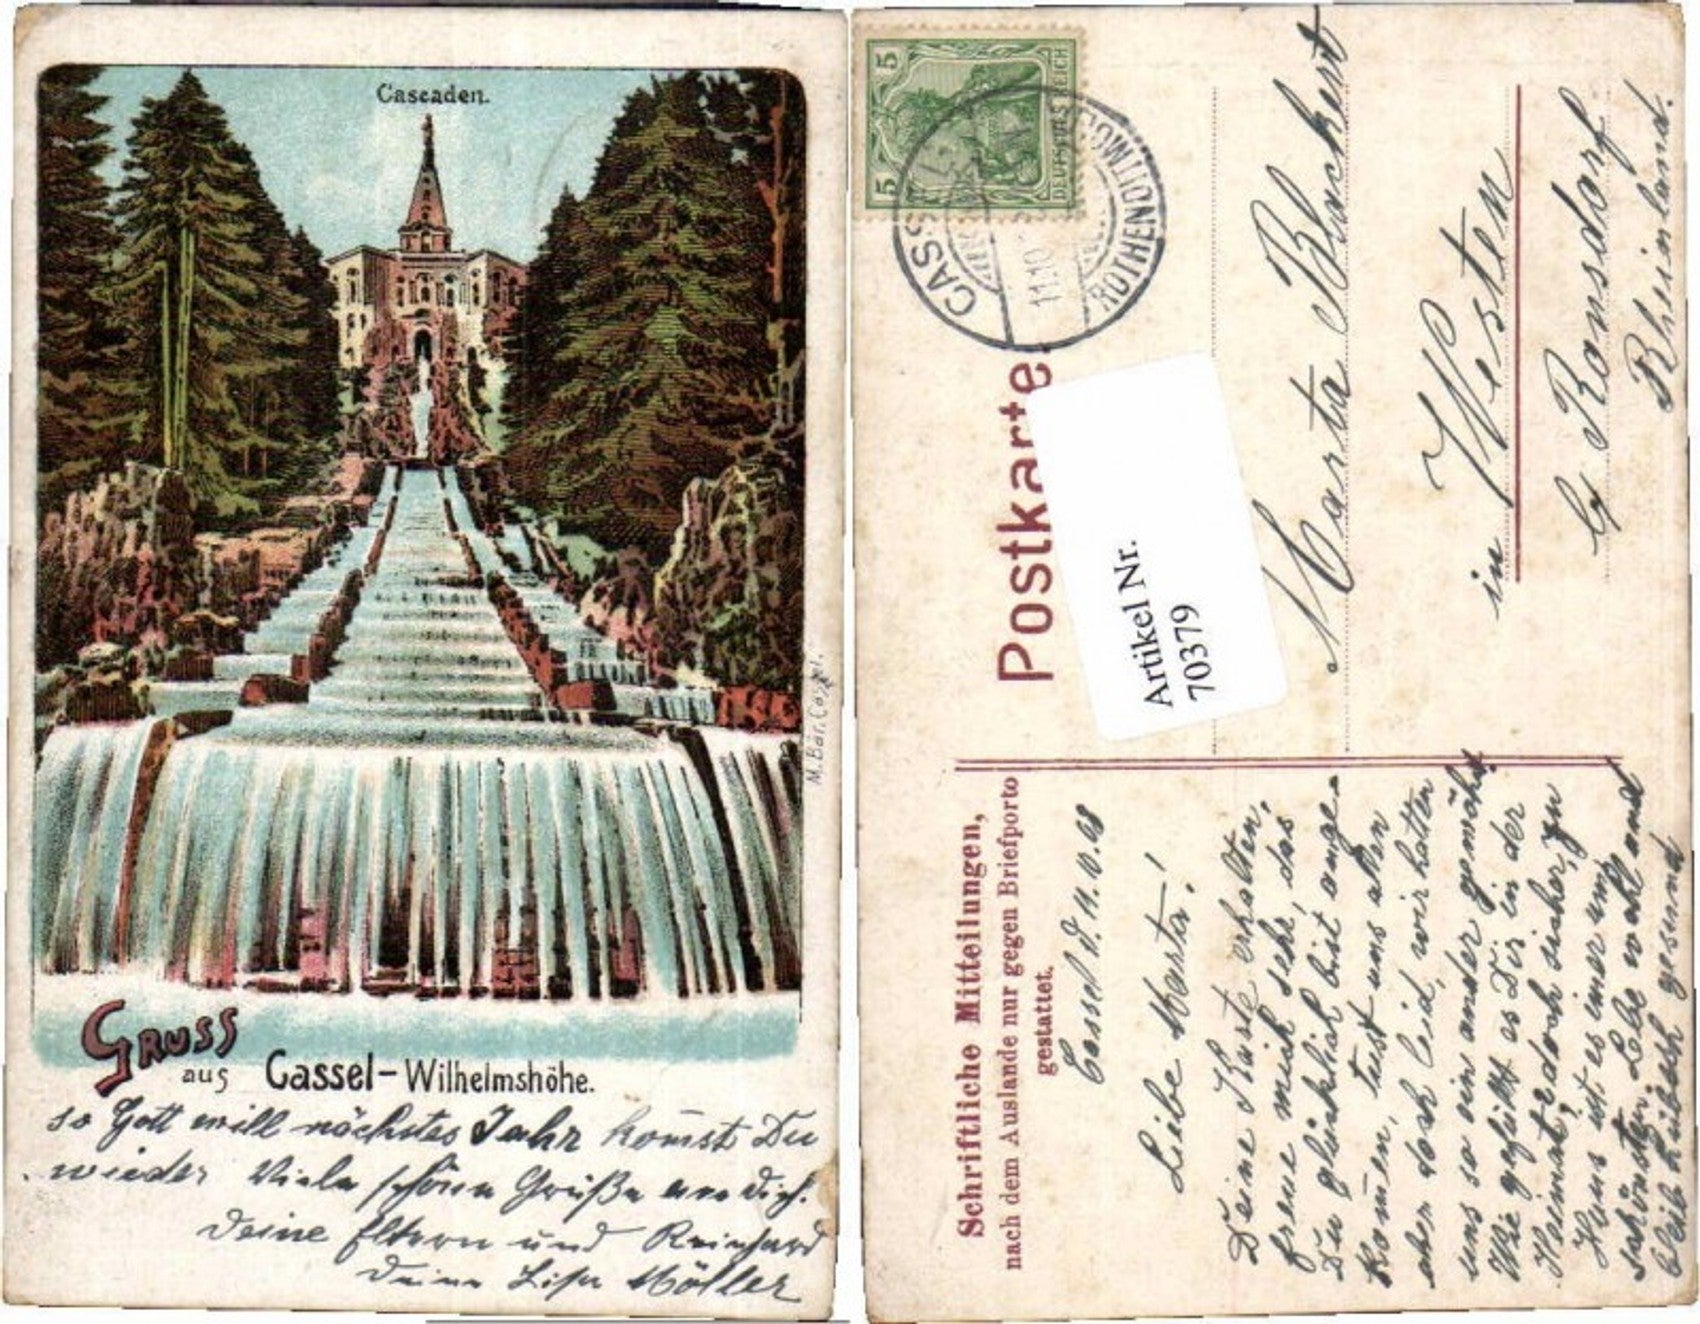 Cascaden.
M. Bär, Cassel.
Gruss
aus Cassel-Wilhelmshöhe.
so Gott will nächstes Jahr komst Du
wieder Viele schöne Grüße an Dich.
Deine Eltern und Reinhard
Deine Lisa Möller
5 5
DEUTSCHES REICH
CASS
ROTHENDITMOLD
11.10
Postkarte.
Artikel Nr.
70379
Marta Blackert
in Westen
b/ Ronsdorf
Rheinland.
Schriftliche Mitteilungen,
nach dem Auslande nur gegen Briefporto
gestattet.
Cassel d. 11.10.08
Liebe Marta!
Deine Karte erhalten,
freue mich sehr, das
Du glücklich bist ange-
komen, tust uns allen
aber doch leid, wir hatten
uns so ein ander gewöhnt.
Wie gefällt es Dir in der
Heimat? doch sicher, zu
Haus ist es imer am
schönsten. Lebe wohl und
bleib hübsch gesund